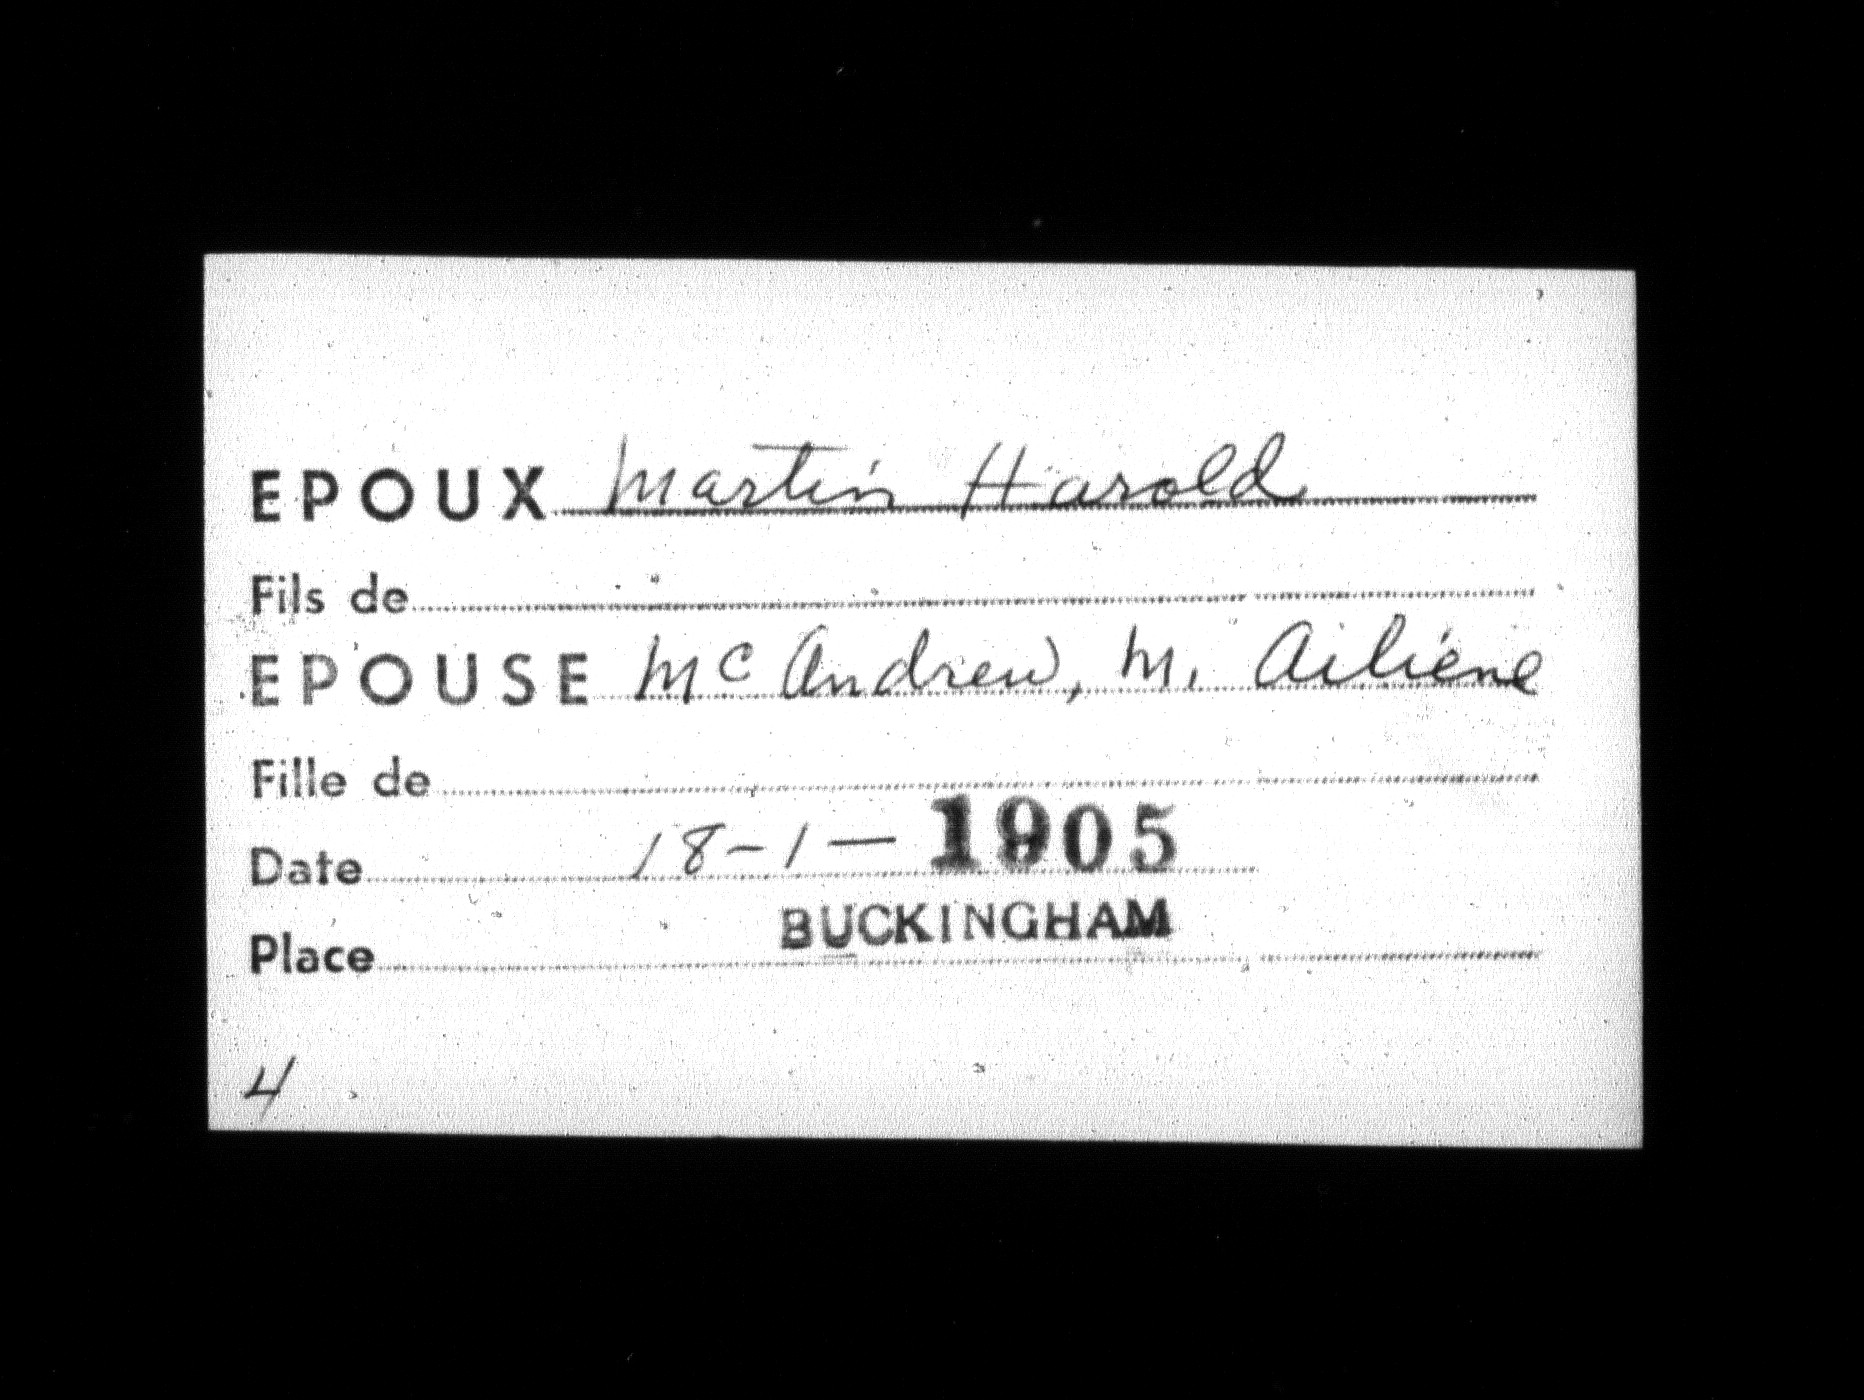 EPOUX Martin Harold
Fils de
EPOUSE Mc Andrew, M. Ailiene
Fille de
Date 18-1-1905
Place BUCKINGHAM
4